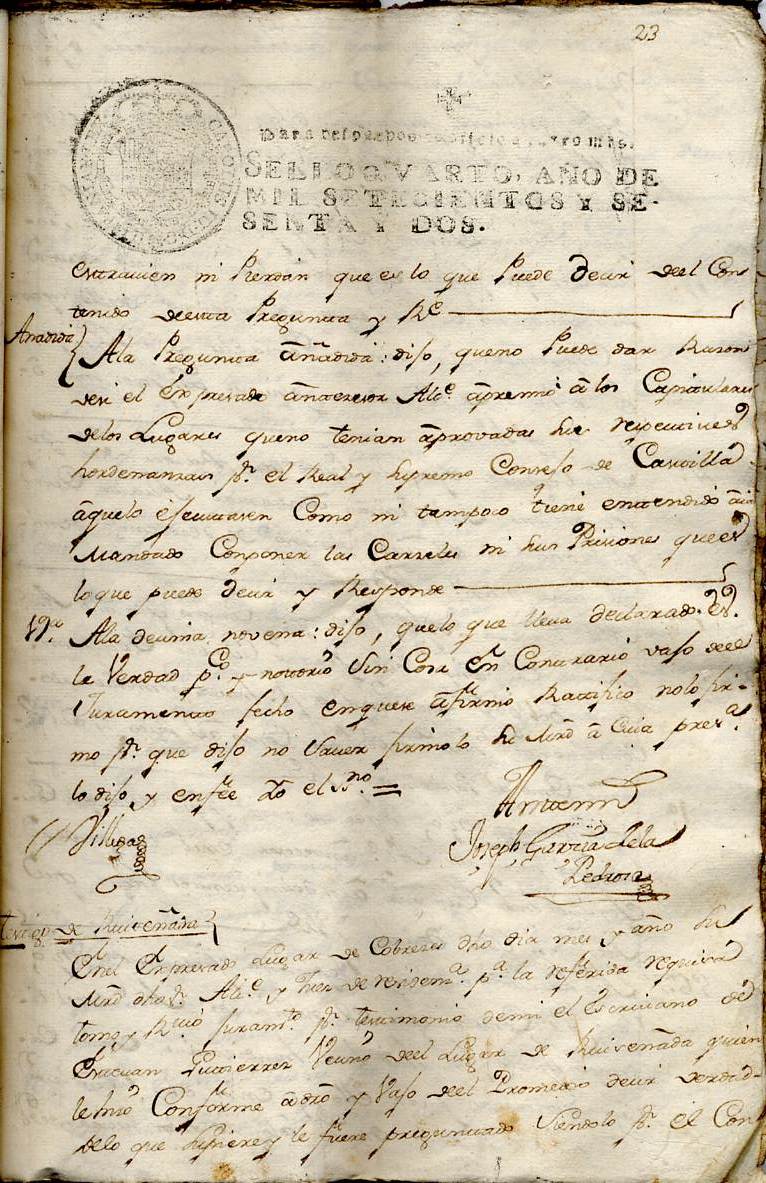 23
SELLO QVARTO, AÑO DE
MIL SETECIENTOS Y SE-
SENTA Y DOS.
ni Pierdan que es lo que Puede Decir deel Con
tenido de esta Pregunta y Re
Añadida
Ala Pregunta añadida: dijo, queno Puede dar Razon
desi el Expresado antezesor Alce. apremió a los Capitulares
delos Lugares queno tenian aprovadas sus respectivas
hordenanzas pr. el Real y Supremo Consejo de Castilla
aquelo ejecutasen Como ni tampoco tiene entendido aia
Mandado Componer las Carzeles ni sus Prisiones que es
loque puede decir y Responde
19ª.
Ala decima novena: dijo, quelo que lleva declarado es
la Verdad pco. y notorio sin Cosa En Contrario vajo deel
Juramento fecho enquese afirmó Ratifico nolo fir-
mo pr. que dijo no saver firmolo su Mrd a Cuia presa.
lo dijo, y enfee de el SSno. =
Villegas
Antemi
Joseph Garcia dela
Pedrosa
testigo de Ruiseñada
Enel Expresado Lugar de Cobreces dho dia mes y año su
Mrd dho Sr. Alce. y Juez de residema. pa. la referida
tomo y Rcivio juramto. pr. testimonio demi el Escrivano de
Estevan Gutierrez Vecino del Lugar de Ruiseñada quien
le hizo Conforme adro y vajo deel Prometio decir verdad
delo que supiere y le fuere preguntado siendolo pr. el Con